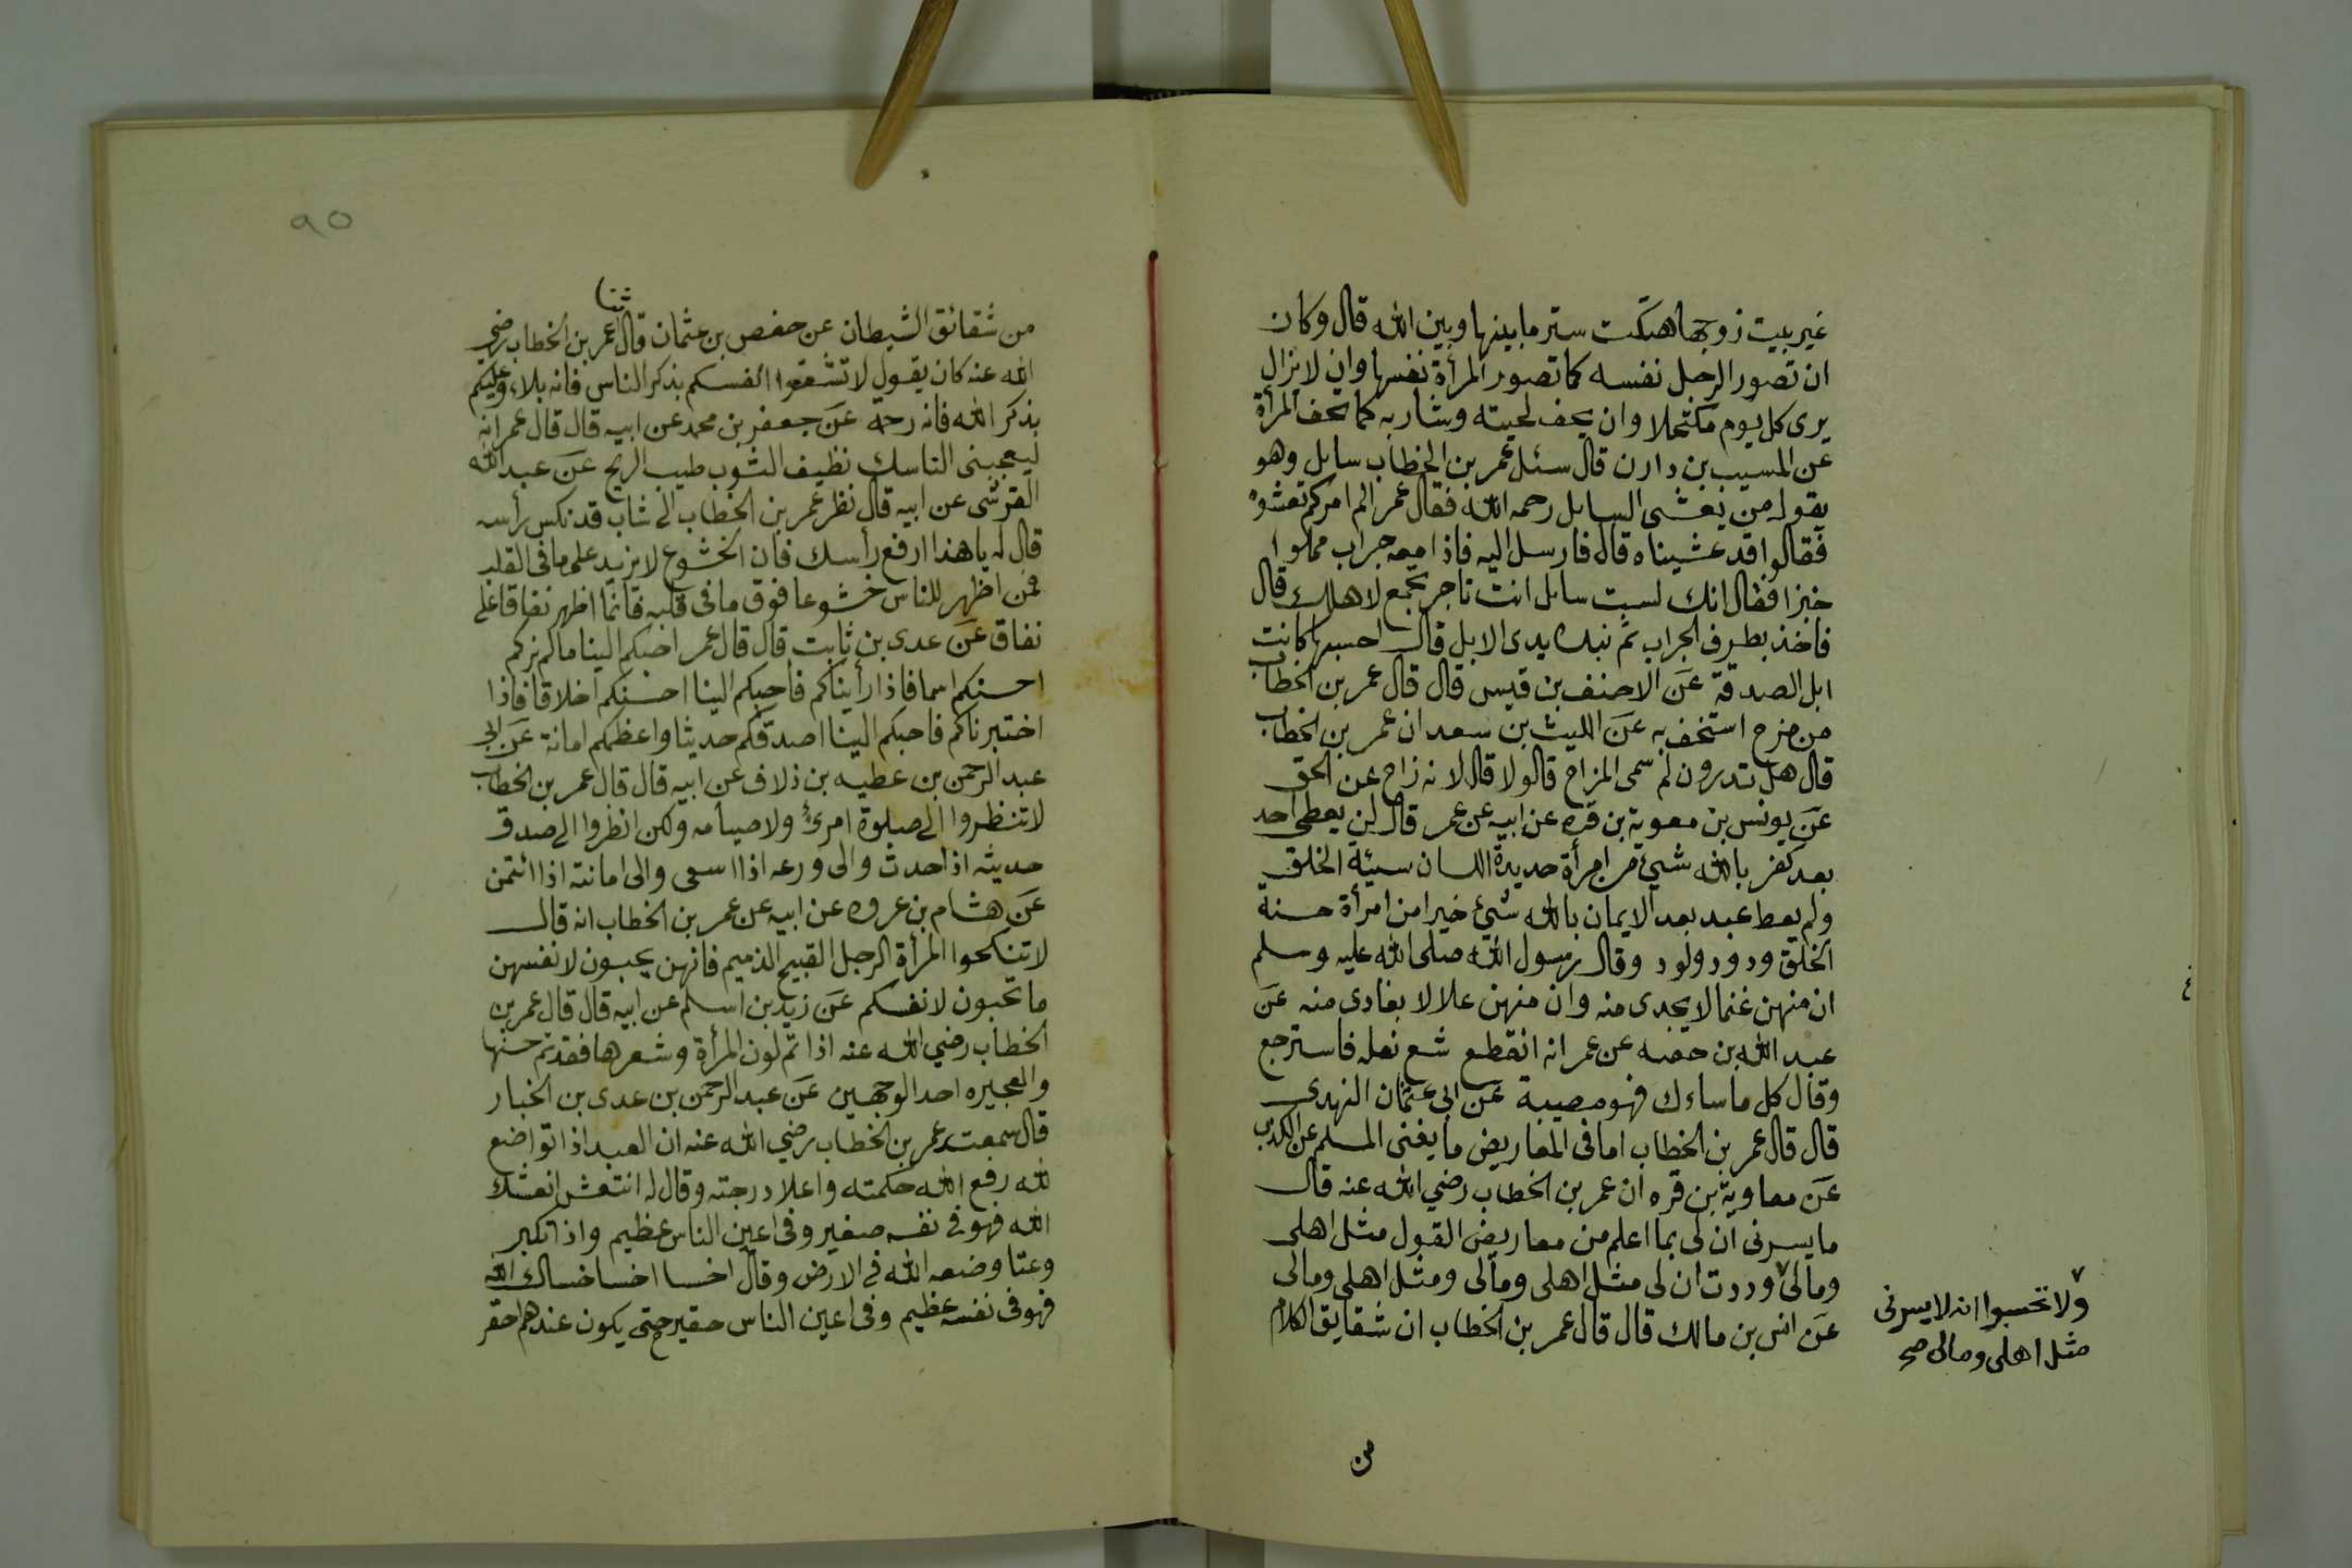 غير بيت زوجها هتكت ستر ما بينها وبين الله قال وكان
ان تصور الرجل نفسه كما تصور المرأة نفسها وان لا يزال
يرى كل يوم مكتحلا وان يحف لحيته وشاربه كما تحف المرأة
عن المسيب بن دارن قال سئل عمر بن الخطاب سايل وهو
يقول من يعشى السايل رحمه الله فقال عمر الم امركم تعشوه
فقالوا قد عشيناه قال فارسل اليه فاذا معه جراب مملوا
خبزا فقال انك لست سايل انت تاجر تجمع لاهلك قال
فاخذ بطرف الجراب ثم نبذه يدى الابل قال احسبها كانت
ابل الصدقة عن الاحنف بن قيس قال قال عمر بن الخطاب
من مزح استخف به عن الليث بن سعد ان عمر بن الخطاب
قال هل تدرون لم سمى المزاح قالو لا قال لانه زاح عن الحق
عن يونس بن معوية بن قره عن ابيه عن عمر قال لن يعطى احد
بعد كفر بالله شيئ من امرأة حديدة اللسان سيئة الخلق
ولم يعط عبد بعد الايمان بالله شيئ خيرا من امرأة حسنة
الخلق ودود ولود وقال رسول الله صلى الله عليه وسلم
ان منهن غنما لا يجدى منه وان منهن علالا يفادى منه عن
عبد الله بن حفصه عن عمر انه انقطع شع نعله فاسترجع
وقال كل ما ساءك فهو مصيبة عن ابى عثمان النهدى
قال قال عمر بن الخطاب اما فى المعاريض ما يغنى المسلم عن الكذب
عن معاوية بن قره ان عمر بن الخطاب رضي الله عنه قال
ما يسرنى ان لى بما اعلم من معاريض القول مثل اهلى
ومالى ٧ وددت ان لى مثل اهلى ومالى ومثل اهلى ومالى
عن انس بن مالك قال قال عمر بن الخطاب ان شقايق الكلام
٧
ولا تحسبوا انه لا يسرنى
مثل اهلى ومالى صح
من
٩٥
من شقائق الشيطان عن حفص بن عثمان قال عمر بن الخطاب رضي
الله عنه كان يقول لا تشغلوا انفسكم بذكر الناس فانه بلاء وعليكم
بذكر الله فانه رحمة عن جعفر بن محمد عن ابيه قال قال عمر انه
ليعجبنى الناسك نظيف الثوب طيب الريح عن عبد الله
القرشى عن ابيه قال نظر عمر بن الخطاب الى شاب قد نكس رأسه
قال له يا هذا ارفع رأسك فان الخشوع لا يزيد على ما فى القلب
فمن اظهر للناس خشوعا فوق ما فى قلبه فانما اظهر نفاقا على
نفاق عن عدى بن ثابت قال قال عمر احبكم الينا ما لم نركم
احسنكم اسما فاذا رأيناكم فاحبكم الينا احسنكم اخلاقا فاذا
اختبرناكم فاحبكم الينا اصدقكم حديثا واعظمكم امانة عن ابى
عبد الرحمن بن عطيه بن دلاف عن ابيه قال قال عمر بن الخطاب
لا تنظروا الى صلوة امرئ ولا صيامه ولكن انظروا الى صدق
حديثه اذا حدث والى ورعه اذا اسعى والى امانته اذا ائتمن
عن هشام بن عروه عن ابيه عن عمر بن الخطاب انه قال
لا تنكحوا المرأة الرجل القبيح الذميم فانهن يحبون لانفسهن
ما تحبون لانفسكم عن زيد بن اسلم عن ابيه قال قال عمر بن
الخطاب رضي الله عنه اذا تم لون المرأة وشعرها فقد تم حسنها
والعجيزه احد الوجهين عن عبد الرحمن بن عدى بن الخيار
قال سمعت عمر بن الخطاب رضي الله عنه ان العبد اذا تواضع
لله رفع الله حكمته واعلا درجته وقال له انتعش انعشك
الله فهو فى نفسه صغير وفى اعين الناس عظيم واذا تكبر
وعتا وضعه الله فى الارض وقال اخسا اخسا خساك الله
فهو فى نفسه عظيم وفى اعين الناس حقير حتى يكون عندهم احقر